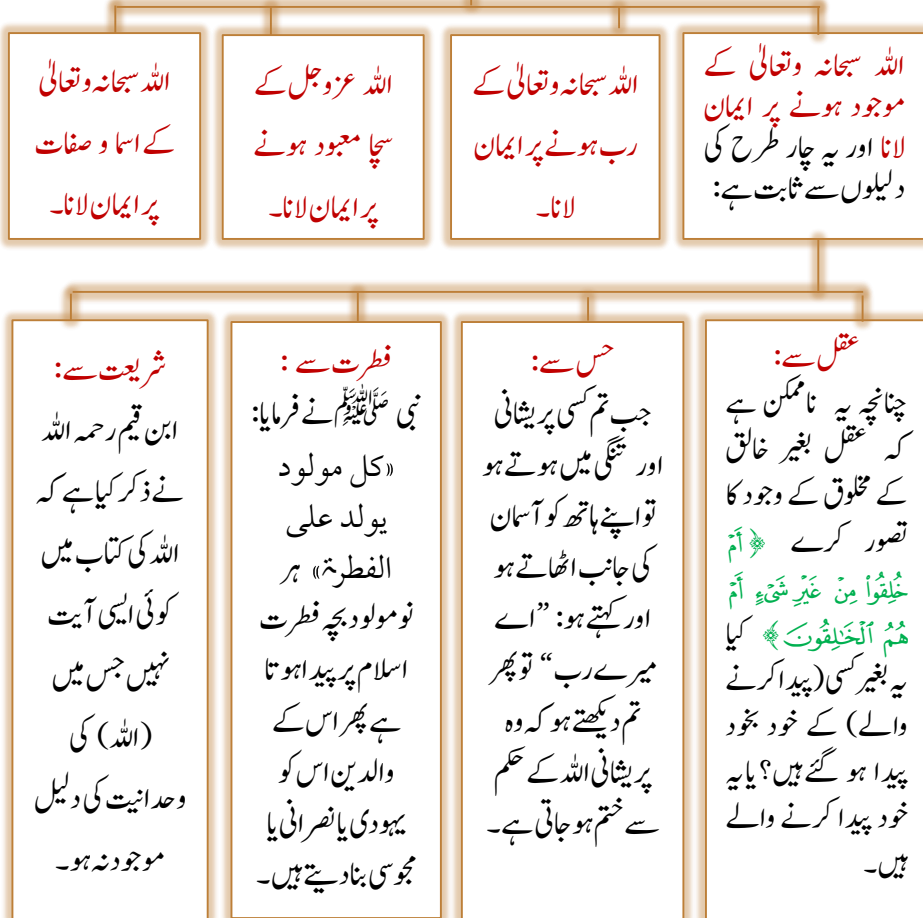 اللہ سبحانہ وتعالیٰ کے
موجود ہونے پر ایمان
لانا اور یہ چار طرح کی
دلیلوں سے ثابت ہے:
اللہ سبحانہ وتعالیٰ کے
رب ہونے پر ایمان
لانا۔
اللہ عزوجل کے
سچا معبود ہونے
پر ایمان لانا۔
اللہ سبحانہ وتعالیٰ
کے اسما و صفات
پر ایمان لانا۔
عقل سے:
چنانچہ یہ ناممکن ہے
کہ عقل بغیر خالق
کے مخلوق کے وجود کا
تصور کرے ﴿أَمۡ
خُلِقُواْ مِنۡ غَيۡرِ شَيۡءٍ أَمۡ
هُمُ ٱلۡخَٰلِقُونَ﴾ کیا
یہ بغیر کسی (پیدا کرنے
والے) کے خود بخود
پیدا ہو گئے ہیں؟ یا یہ
خود پیدا کرنے والے
ہیں۔
حس سے:
جب تم کسی پریشانی
اور تنگی میں ہوتے ہو
تو اپنے ہاتھ کو آسمان
کی جانب اٹھاتے ہو
اور کہتے ہو: ”اے
میرے رب“ تو پھر
تم دیکھتے ہو کہ وہ
پریشانی اللہ کے حکم
سے ختم ہو جاتی ہے۔
فطرت سے :
نبی ﷺ نے فرمایا:
«کل مولود
یولد علی
الفطرۃ» ہر
نومولود بچہ فطرت
اسلام پر پیدا ہوتا
ہے پھر اس کے
والدین اس کو
یہودی یا نصرانی یا
مجوسی بنا دیتے ہیں۔
شریعت سے:
ابن قیم رحمہ اللہ
نے ذکر کیا ہے کہ
اللہ کی کتاب میں
کوئی ایسی آیت
نہیں جس میں
(اللہ) کی
وحدانیت کی دلیل
موجود نہ ہو۔